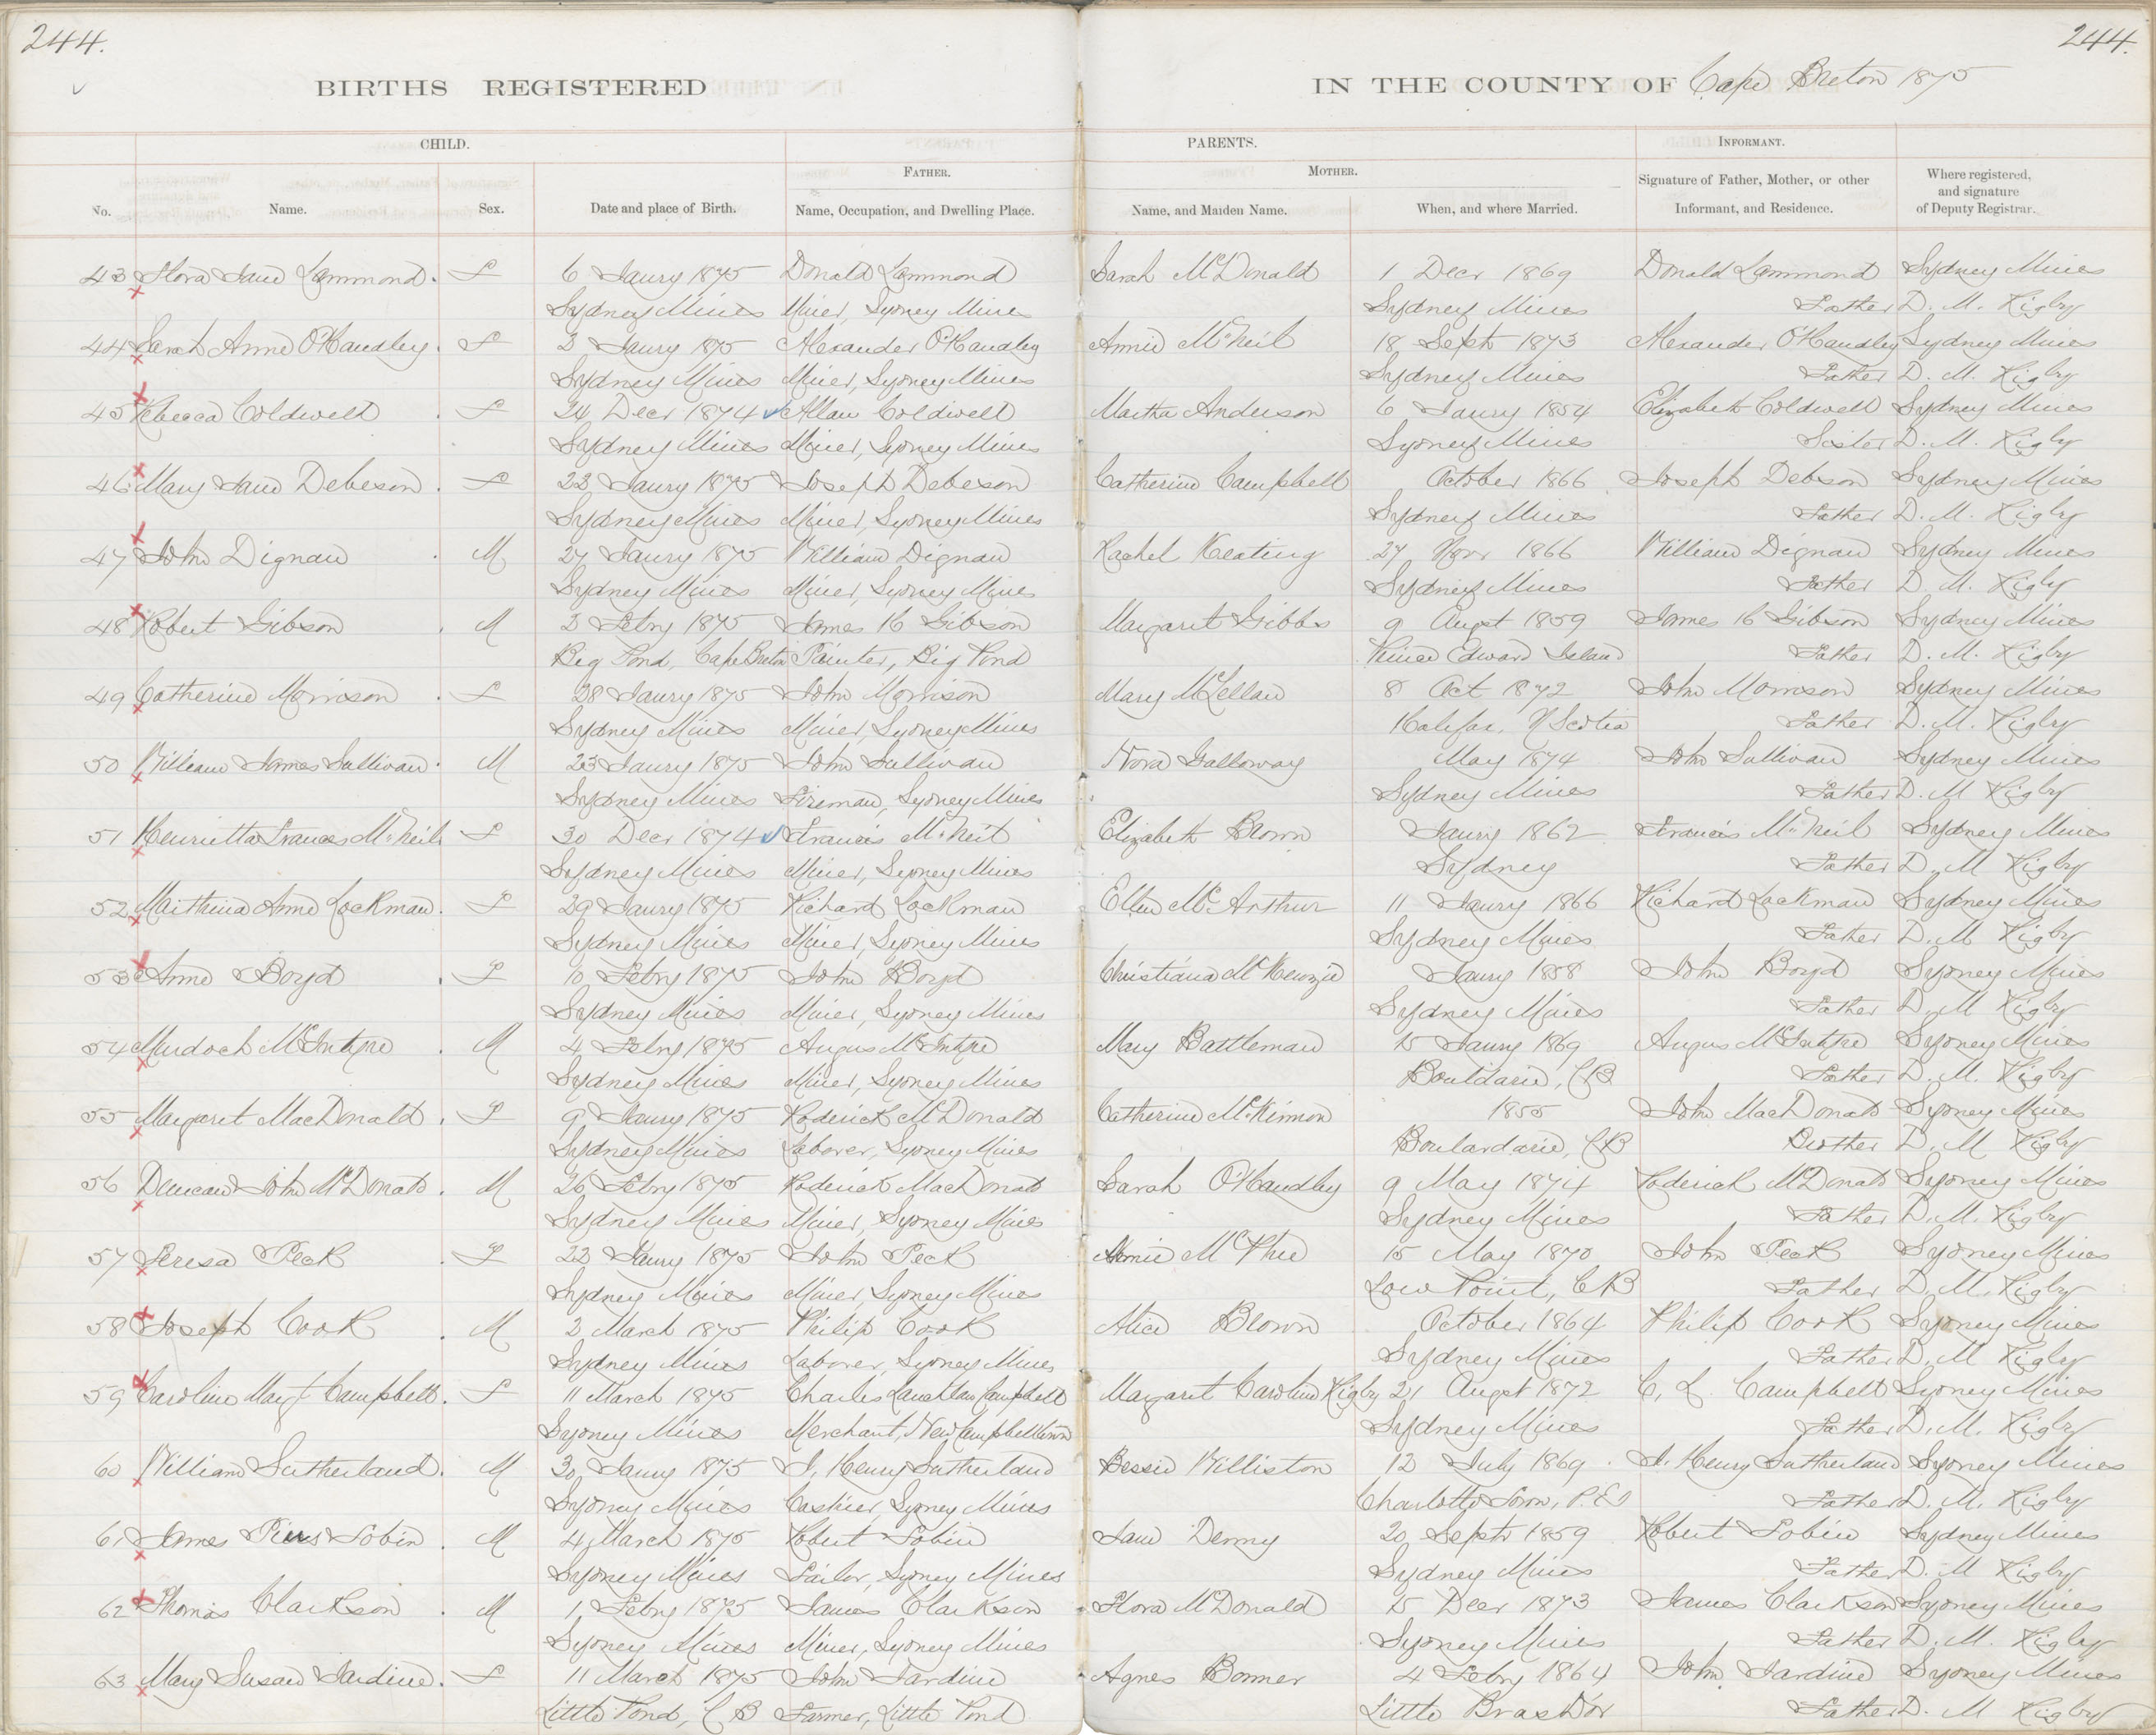 244.
244.
BIRTHS REGISTERED IN THE COUNTY OF Cape Breton 1875
CHILD. PARENTS. INFORMANT.
FATHER. MOTHER.
No. Name. Sex. Date and place of Birth. Name, Occupation, and Dwelling Place. Name, and Maiden Name. When, and where Married. Signature of Father, Mother, or other Informant, and Residence. Where registered, and signature of Deputy Registrar.
43 Flora Jane Lammond. F 6 Jaury 1875 Donald Lammond Sarah McDonald 1 Decr 1869 Donald Lammond Sydney Mines
Sydney Mines Miner, Sydney Mines Sydney Mines Father D. M. Rigby
44 Sarah Anne O'Handley. F 3 Jaury 1875 Alexander O'Handley Annie McNeil 18 Septr 1873 Alexander O'Handley Sydney Mines
Sydney Mines Miner, Sydney Mines Sydney Mines Father D. M. Rigby
45 Rebecca Coldwell. F 24 Decr 1874 Allan Coldwell Martha Anderson 6 Jaury 1854 Elizabeth Coldwell Sydney Mines
Sydney Mines Miner, Sydney Mines Sydney Mines Sister D. M. Rigby
46 Mary Jane Debeson. F 22 Jaury 1875 Joseph Debeson Catherine Campbell October 1866 Joseph Debson Sydney Mines
Sydney Mines Miner, Sydney Mines Sydney Mines Father D. M. Rigby
47 John Dignan. M 27 Jaury 1875 William Dignan Rachel Keating 27 Novr 1866 William Dignan Sydney Mines
Sydney Mines Miner, Sydney Mines Sydney Mines Father D. M. Rigby
48 Robert Gibson. M 3 Febry 1875 James H Gibson Margaret Gibbs 9 Augst 1859 James H Gibson Sydney Mines
Big Pond, Cape Breton Painter, Big Pond Prince Edward Island Father D. M. Rigby
49 Catherine Morrison. F 28 Jaury 1875 John Morrison Mary McLellan 8 Oct 1872 John Morrison Sydney Mines
Sydney Mines Miner, Sydney Mines Halifax, N Scotia Father D. M. Rigby
50 William James Sullivan. M 23 Jaury 1875 John Sullivan Nora Galloway May 1874 John Sullivan Sydney Mines
Sydney Mines Fireman, Sydney Mines Sydney Mines Father D. M Rigby
51 Henrietta Frances McNeil F 30 Decr 1874 Francis McNeil Elizabeth Brown Jaury 1862 Francis McNeil Sydney Mines
Sydney Mines Miner, Sydney Mines Sydney Father D. M Rigby
52 Anne Lockman. F 29 Jaury 1875 Richard Lockman Ellen McArthur 11 Jaury 1866 Richard Lockman Sydney Mines
Sydney Mines Miner, Sydney Mines Sydney Mines Father D. M Rigby
53 Anne Boyd. F 10 Febry 1875 John Boyd Christiana McKenzie Jaury 1858 John Boyd Sydney Mines
Sydney Mines Miner, Sydney Mines Sydney Mines Father D. M Rigby
54 Murdoch McIntyre. M 4 Febry 1875 Angus McIntyre Mary Battleman 15 Jaury 1869 Angus McIntyre Sydney Mines
Sydney Mines Miner, Sydney Mines Bouldarie, CB Father D. M. Rigby
55 Margaret MacDonald. F 9 Jaury 1875 Roderick McDonald Catherine McKinnon 1855 John MacDonald Sydney Mines
Sydney Mines Laborer, Sydney Mines Boulardarie, CB Brother D. M Rigby
56 Duncan John McDonald. M 26 Febry 1875 Roderick MacDonald Sarah O'Handley 9 May 1874 Roderick McDonald Sydney Mines
Sydney Mines Miner, Sydney Mines Sydney Mines Father D. M. Rigby
57 Teresa Peck. F 22 Jaury 1875 John Peck Annie McPhee 15 May 1870 John Peck Sydney Mines
Sydney Mines Miner, Sydney Mines Low Point, CB Father D. M. Rigby
58 Joseph Cook. M 2 March 1875 Philip Cook Alice Brown October 1864 Philip Cook Sydney Mines
Sydney Mines Laborer, Sydney Mines Sydney Mines Father D. M Rigby
59 Caroline May Campbell. F 11 March 1875 Charles Lauchlan Campbell Margaret Caroline Rigby 21 Augst 1872 C. L. Campbell Sydney Mines
Sydney Mines Merchant, New Campbelltown Sydney Mines Father D. M. Rigby
60 William Sutherland. M 30 Jaury 1875 J. Henry Sutherland Bessie Williston 12 July 1869 J. Henry Sutherland Sydney Mines
Sydney Mines Cashier, Sydney Mines Charlotte Town, P.E.I Father D. M. Rigby
61 James Piers Tobin. M 4 March 1875 Robert Tobin Jane Denny 20 Septr 1859 Robert Tobin Sydney Mines
Sydney Mines Tailor, Sydney Mines Sydney Mines Father D. M Rigby
62 Thomas Clarkson. M 1 Febry 1875 James Clarkson Flora McDonald 15 Decr 1873 James Clarkson Sydney Mines
Sydney Mines Miner, Sydney Mines Sydney Mines Father D. M. Rigby
63 Mary Susan Jardine. F 11 March 1875 John Jardine Agnes Bonner 4 Febry 1864 John Jardine Sydney Mines
Little Pond, CB Farmer, Little Pond Little Bras Dor Father D. M Rigby